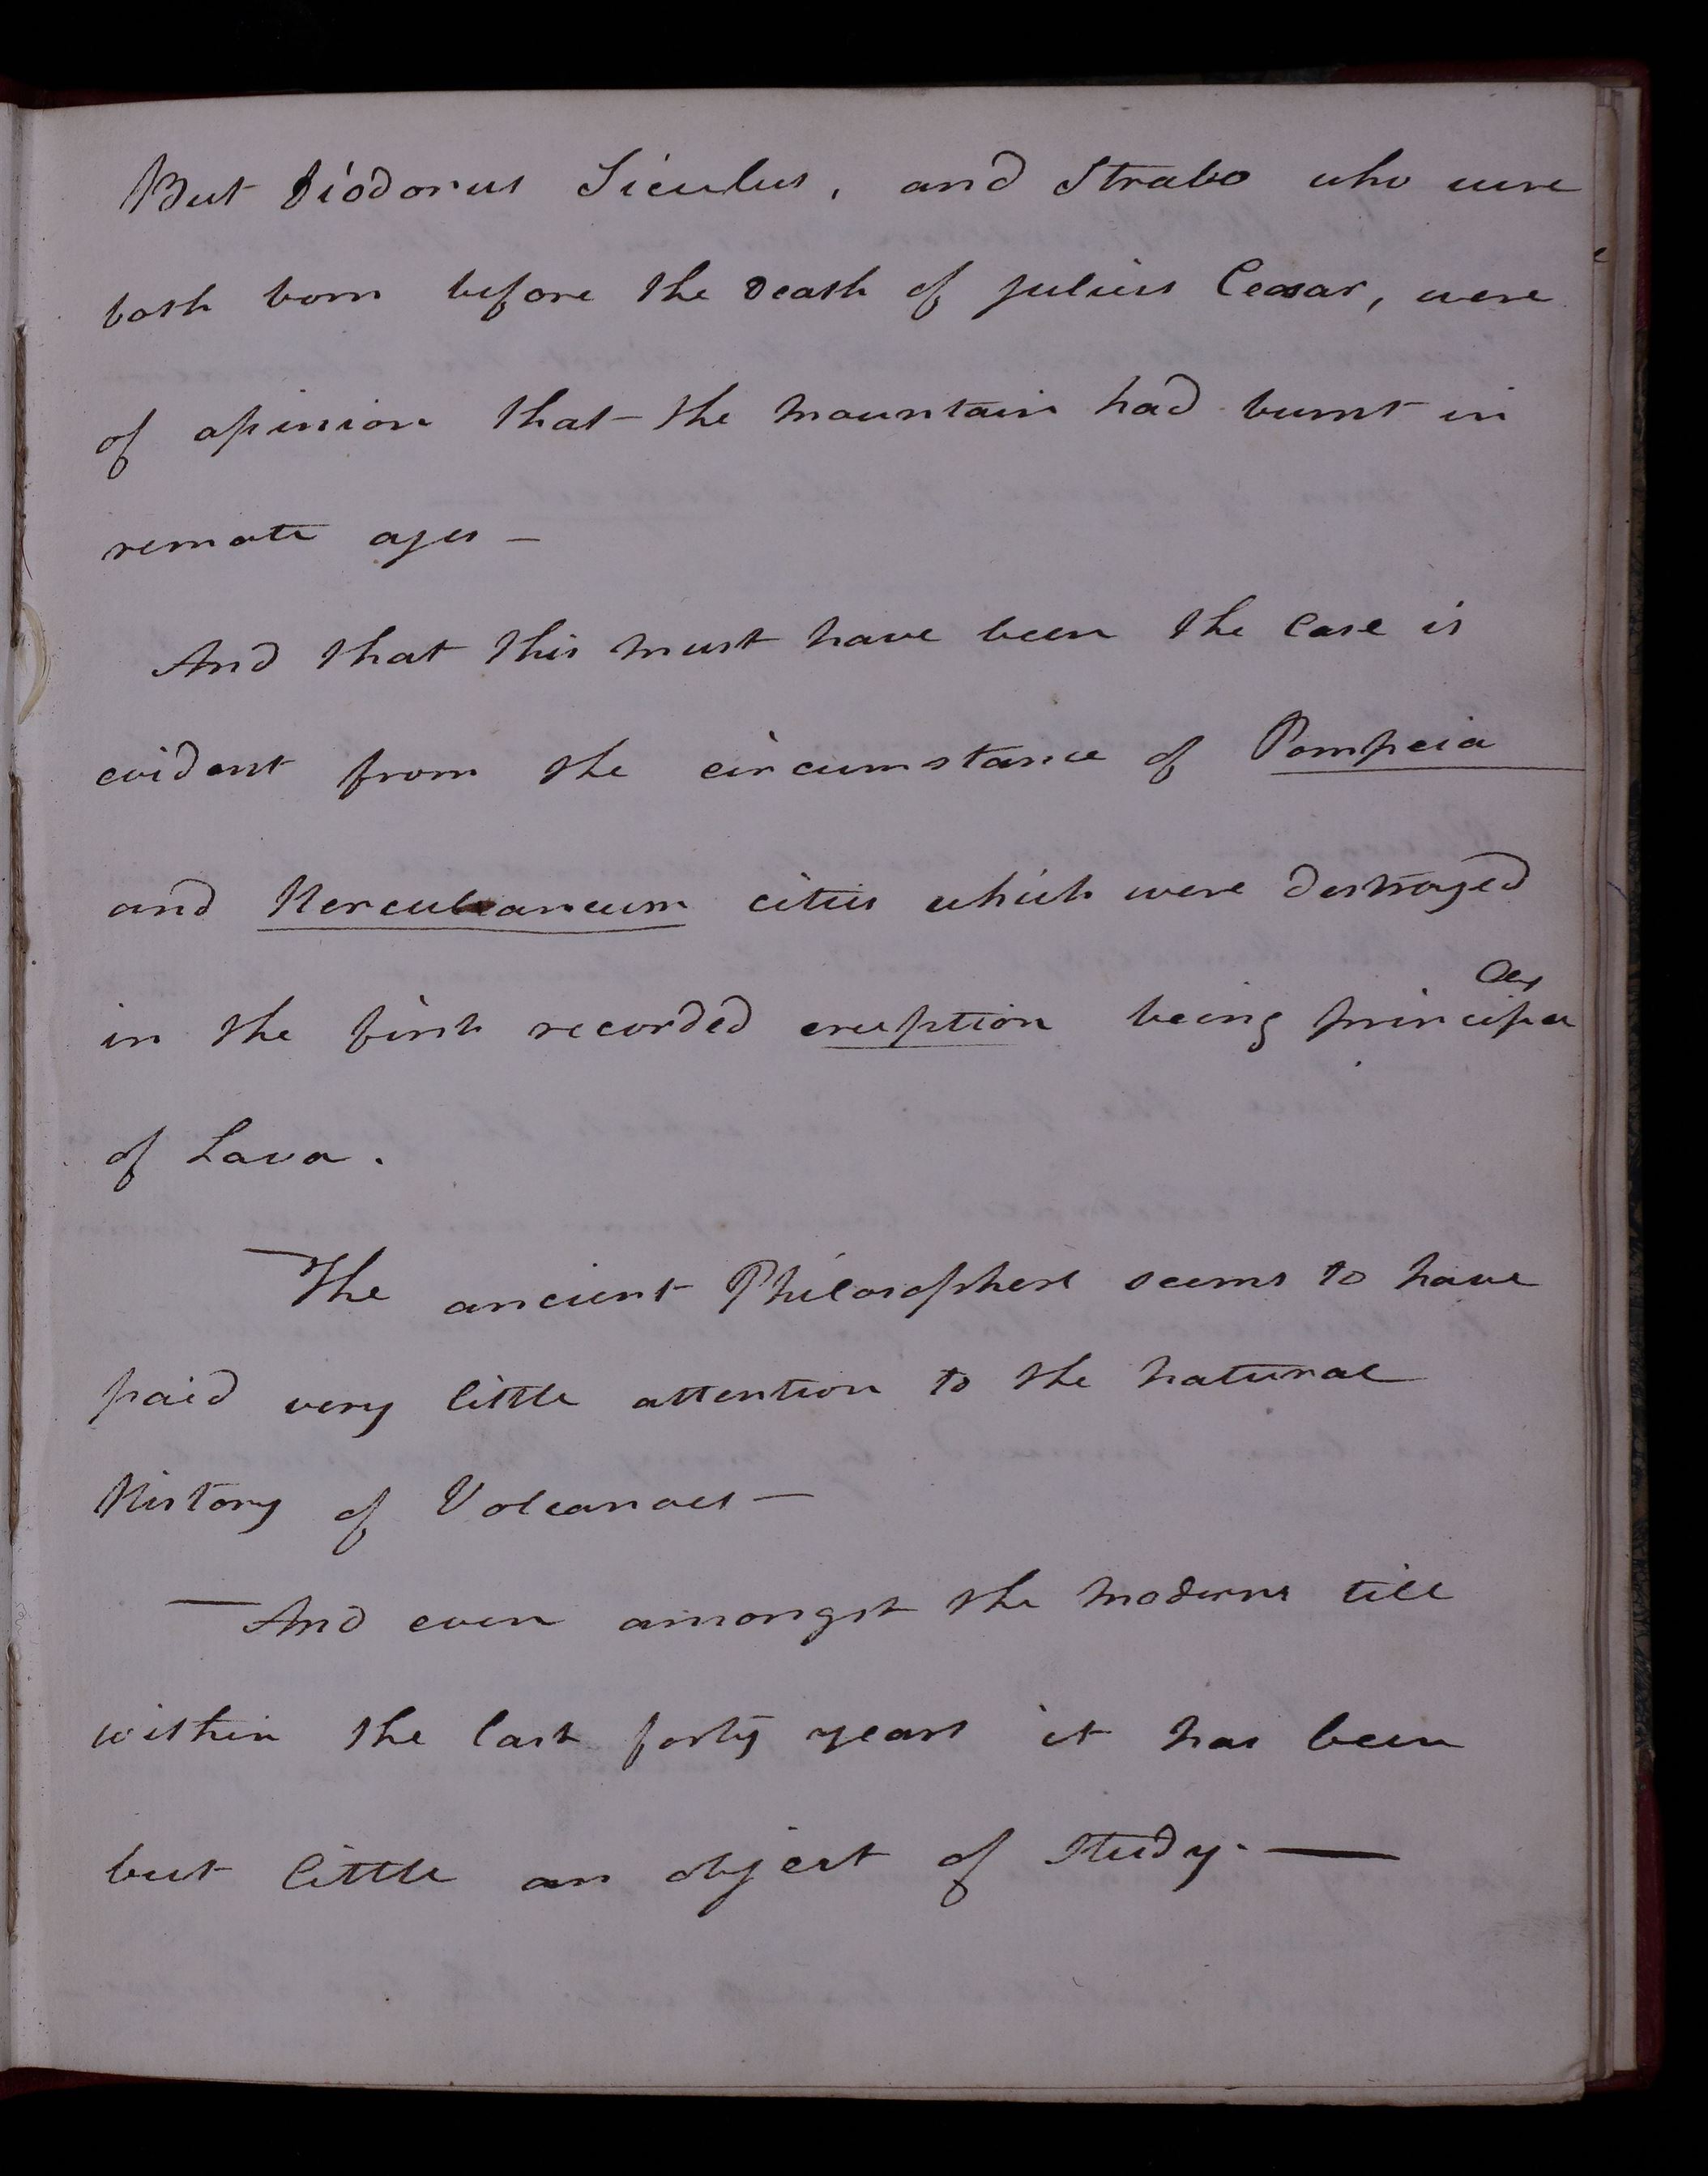 But Diodorus Siculus, and Strabo who were
both born before the Death of Julius Ceasar, were
of opinion that the mountain had burnt in
remote ages —
And that this must have been the Case is
evident from the circumstance of Pompeia
and Herculeaneum cities which were destroyed
in the first recorded eruption being principally
of Lava.
— The ancient Philosophers seems to have
paid very little attention to the natural
History of Volcanoes —
— And even amongst the moderns till
within the last forty years it has been
but little an object of Study. —